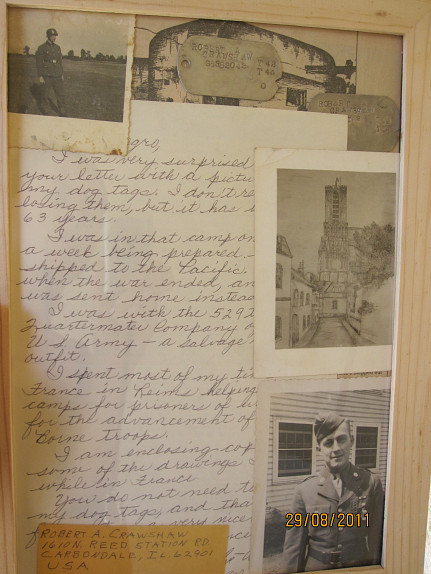 ROBERT A.
CRANSHAW
T42
T43
O
I was very surprised
your letter with a pictu
my dog tags. I don't re
losing them, but it has
63 years.
I was in that camp on
a week being prepared
shipped to the Pacific.
when the war ended, an
was sent home instea
I was with the 529t
Quartermater Company o
U S Army — a salvage
outfit.
I spent most of my ti
France in Reims helping
camps for prisoners of w
for the advancement of
borne troops.
I am enclosing cop
some of the drawings
while in France
You do not need t
my dog tags, and tha
very nice
ROBERT A. CRAWSHAW
1610 N. REED STATION RD
CARBONDALE, IL 62901
USA
29/08/2011